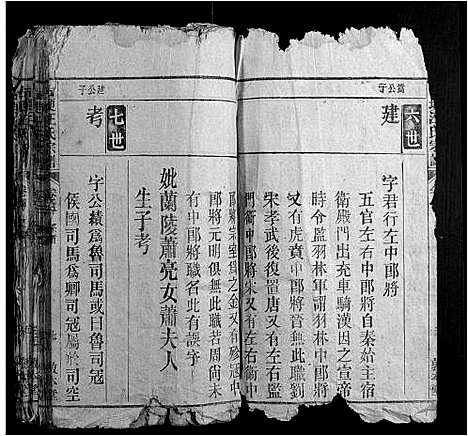 六世
建
字君行左中郎將
五官左右中郎將自秦始主宿
衛殿門出充車騎漢因之宣帝
時令監羽林軍謂羽林中郎將
又有虎賁中郎將晉無此職劉
宋孝武後復置唐又有左右監
門衛中郎將宋又有左右衛中
郎將宗室為之金又有殄寇中
郎將元明俱無此職若周尚未
有中郎將職名此有誤字
妣蘭陵蕭亮女蕭夫人
生子考
建公子
七世
考
字公績為魯司馬或曰魯司寇
侯國司馬為卿司寇屬於司空